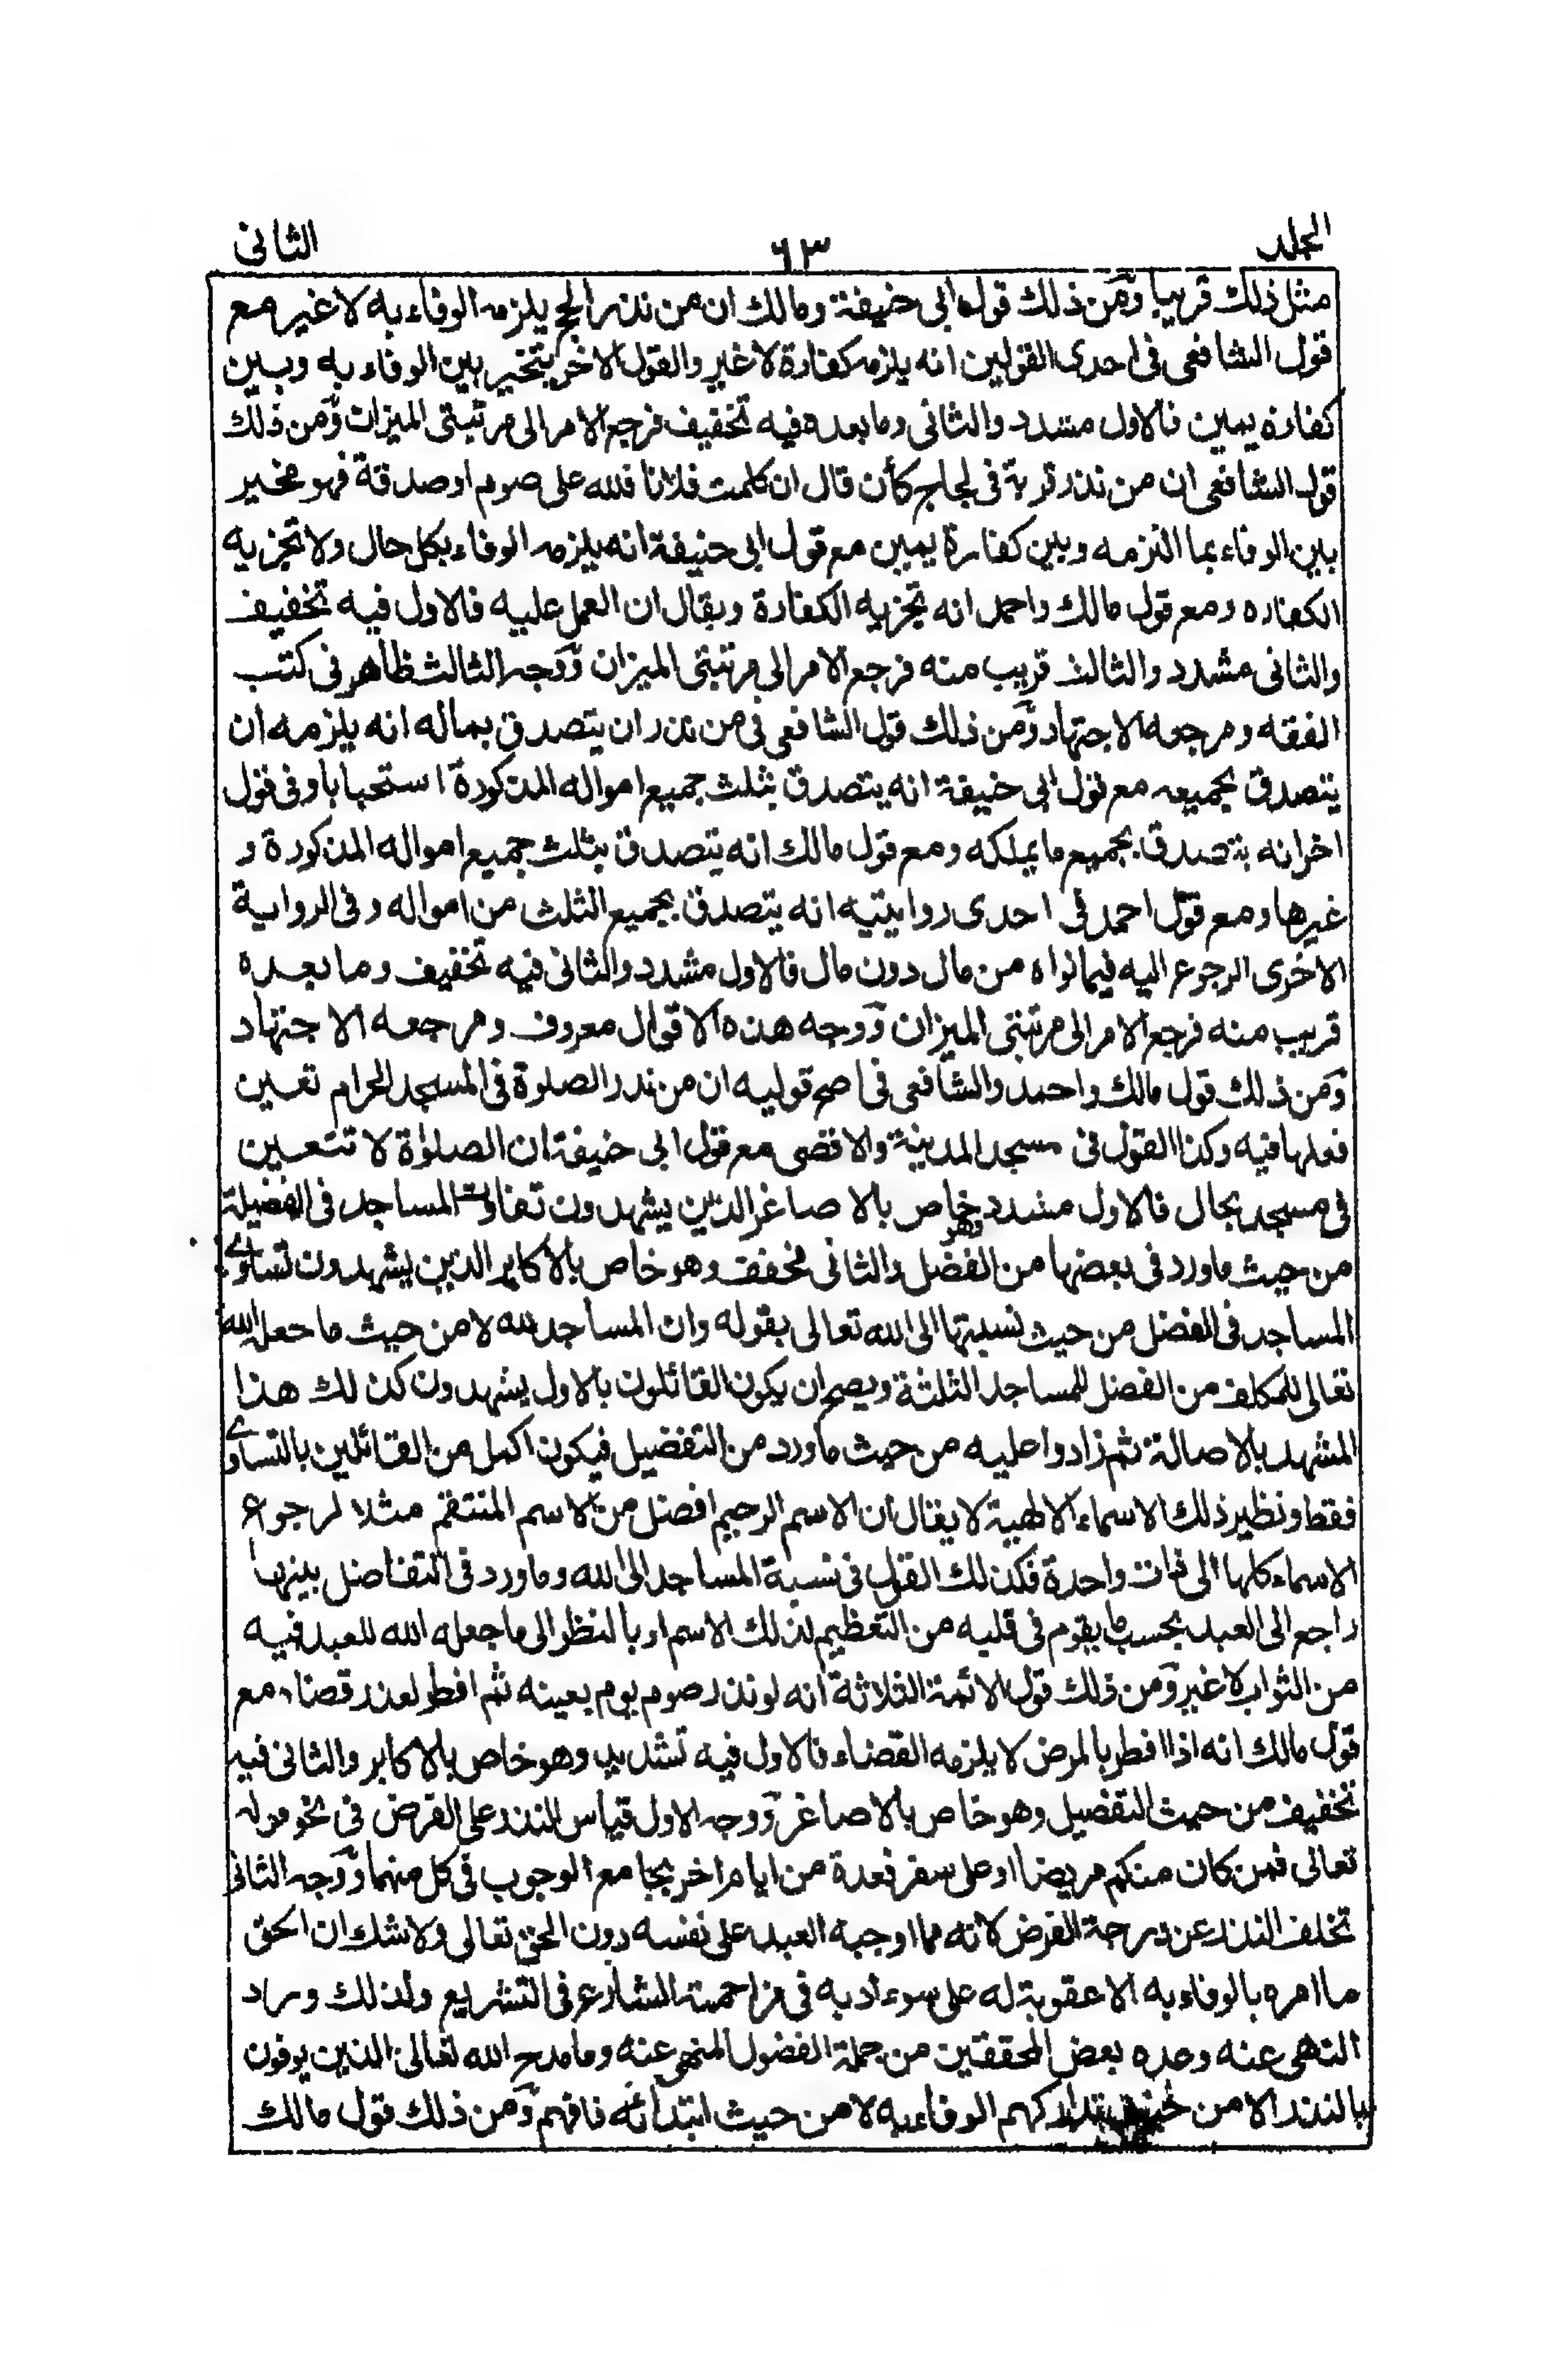 المجلد
٦٣
الثانى
مثل ذلك قريبا ومن ذلك قول ابى حنيفة ومالك ان من نذر الحج يلزمه الوفاء به لا غير مع
قول الشافعى فى احدى القولين انه يلزمه كفارة لا غير والقول الاخر يتخير بين الوفاء به وبين
كفارة يمين فالاول مشدد والثانى وما بعده فيه تخفيف فرجع الامر الى مرتبتى الميزان ومن ذلك
قول الشافعى ان من نذر قربة فى لجاج كأن قال ان كلمت فلانا فلله على صوم او صدقة فهو مخير
بين الوفاء بما التزمه وبين كفارة يمين مع قول ابى حنيفة انه يلزمه الوفاء بكل حال ولا تجزيه
الكفاره ومع قول مالك واحمد انه تجزيه الكفارة ويقال ان العمل عليه فالاول فيه تخفيف
والثانى مشدد والثالث قريب منه فرجع الامر الى مرتبتى الميزان ووجه الثالث ظاهر فى كتب
الفقه ومرجعه الاجتهاد ومن ذلك قول الشافعى فى من نذر ان يتصدق بماله انه يلزمه ان
يتصدق بجميعه مع قول ابى حنيفة انه يتصدق بثلث جميع امواله المذكورة استحبابا وفى قول
اخر انه يتصدق بجميع ما يملكه ومع قول مالك انه يتصدق بثلث جميع امواله المذكورة و
غيرها ومع قول احمد فى احدى روايتيه انه يتصدق بجميع الثلث من امواله وفى الرواية
الاخرى الرجوع اليه فيما نواه من مال دون مال فالاول مشدد والثانى فيه تخفيف وما بعده
قريب منه فرجع الامر الى مرتبتى الميزان ووجه هذه الاقوال معروف ومرجعه الاجتهاد
ومن ذلك قول مالك واحمد والشافعى فى اصح قوليه ان من نذر الصلوة فى المسجد الحرام تعين
فعلها فيه وكذا القول فى مسجد المدينة والاقصى مع قول ابى حنيفة ان الصلوة لا تتعين
فى مسجد بحال فالاول مشدد وهو خاص بالاصاغر الذين يشهدون تفاوت المساجد فى الفضيلة
من حيث ما ورد فى بعضها من الفضل والثانى مخفف وهو خاص بالاكابر الذين يشهدون تساوى
المساجد فى الفضل من حيث نسبتها الى الله تعالى بقوله وان المساجد لله لا من حيث ما جعل الله
تعالى للمكلف من الفضل للمساجد الثلثة ويصح ان يكون القائلون بالاول يشهدون كذلك هذا
المشهد بالاصالة ثم زادوا عليه من حيث ما ورد من التفضيل فيكون اكمل من القائلين بالتساوى
فقط ونظير ذلك الاسماء الالهية لا يقال ان الاسم الرحيم افضل من الاسم المنتقم مثلا لرجوع
الاسماء كلها الى ذات واحدة فكذلك القول فى نسبة المساجد الى الله وما ورد فى التفاضل بينها
راجع الى العبد بحسب ما يقوم فى قلبه من التعظيم لذلك الاسم او بالنظر الى ما جعله الله للعبد فيه
من الثواب لا غير ومن ذلك قول الائمة الثلاثة انه لو نذر صوم يوم بعينه ثم افطر لعذر قضاه مع
قول مالك انه اذا افطر بالمرض لا يلزمه القضاء فالاول فيه تشديد وهو خاص بالاكابر والثانى فيه
تخفيف من حيث التفضيل وهو خاص بالاصاغر ووجه الاول قياس النذر على الفرض فى نحو قوله
تعالى فمن كان منكم مريضا او على سفر فعدة من ايام اخر بجامع الوجوب فى كل منهما ووجه الثانى
تخلف النذر عن درجة الفرض لانه مما اوجبه العبد على نفسه دون الحق تعالى ولا شك ان الحق
ما امره بالوفاء به الا عقوبة له على سوء ادبه فى مزاحمة الشارع فى التشريع ولذلك وراد
النهى عنه وعده بعض المحققين من جملة الفضول المنهى عنه وما مدح الله تعالى الذين يوفون
بالنذر الا من تداركهم الوفاء به لا من حيث ابتدائه فافهم ومن ذلك قول مالك